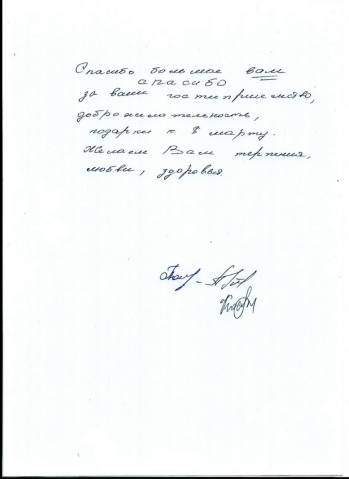 Спасибо большое вам
спасибо
за ваши гостиприемство,
доброжилательность,
подарки к 8 марту.
Желаем Вам терпения,
любви, здоровья